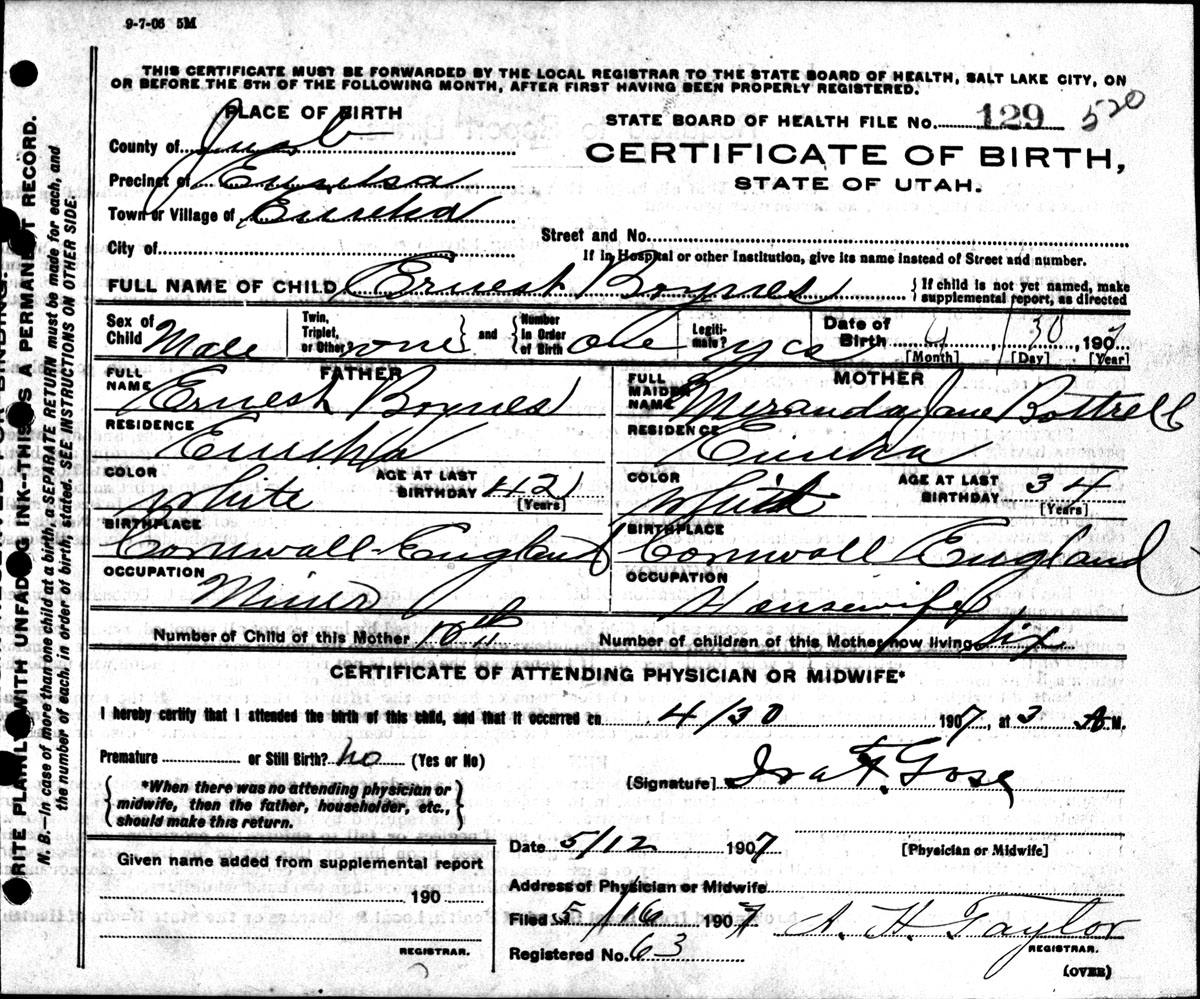 9-7-06 5M
THIS CERTIFICATE MUST BE FORWARDED BY THE LOCAL REGISTRAR TO THE STATE BOARD OF HEALTH, SALT LAKE CITY, ON
OR BEFORE THE 5TH OF THE FOLLOWING MONTH, AFTER FIRST HAVING BEEN PROPERLY REGISTERED.
PLACE OF BIRTH
STATE BOARD OF HEALTH FILE No. 129 520
County of Juab
CERTIFICATE OF BIRTH,
Precinct of Eureka
STATE OF UTAH.
Town or Village of Eureka
Street and No.
City of
If in Hospital or other Institution, give its name instead of Street and number.
FULL NAME OF CHILD Ernest Boynes { If child is not yet named, make
supplemental report, as directed
Sex of Child Male Twin, Triplet, or Other } one and { Number in Order of Birth one Legiti-mate? yes Date of Birth 4, 30, 1907
[Month] [Day] [Year]
FATHER
FULL NAME Ernest Boynes
RESIDENCE Eureka
COLOR White AGE AT LAST BIRTHDAY 42 [Years]
BIRTHPLACE Cornwall England
OCCUPATION Miner
MOTHER
FULL MAIDEN NAME Miranda Jane Bottrell
RESIDENCE Eureka
COLOR White AGE AT LAST BIRTHDAY 34 [Years]
BIRTHPLACE Cornwall England
OCCUPATION Housewife
Number of Child of this Mother 10th Number of children of this Mother now living Six
CERTIFICATE OF ATTENDING PHYSICIAN OR MIDWIFE*
I hereby certify that I attended the birth of this child, and that it occurred on 4/30 1907, at 3 A.M.
Premature or Still Birth? no (Yes or No)
{ *When there was no attending physician or
midwife, then the father, householder, etc.,
should make this return. }
[Signature]
Date 5/12 1907 [Physician or Midwife]
Given name added from supplemental report
190
Address of Physician or Midwife
Filed 5/16 1907 A. H. Taylor
REGISTRAR.
Registered No. 63
REGISTRAR.
(OVER)
WRITE PLAINLY WITH UNFADING INK—THIS IS A PERMANENT RECORD.
N. B.—In case of more than one child at a birth, a SEPARATE RETURN must be made for each, and
the number of each, in order of birth, stated. SEE INSTRUCTIONS ON OTHER SIDE.